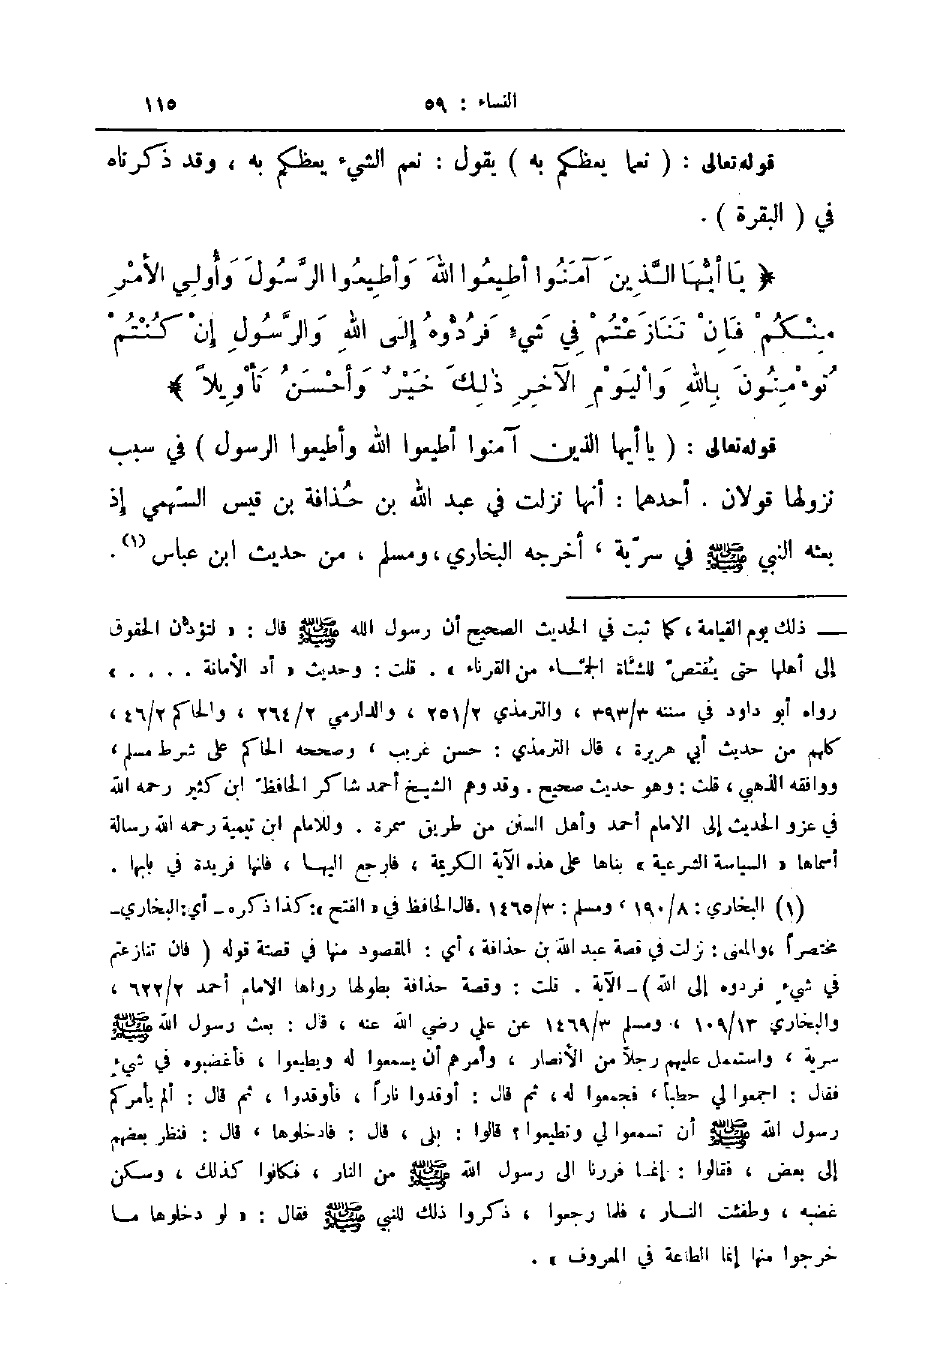 النساء : ٥٩ ١١٥
قوله تعالى : ( نعما يعظكم به ) يقول : نعم الشيء يعظكم به ، وقد ذكرناه
في ( البقرة ) .
﴿ يَا أَيُّهَا الَّذِينَ آمَنُوا أَطِيعُوا اللهَ وَأَطِيعُوا الرَّسُولَ وَأُولِي الأَمْرِ
مِنْكُمْ فَإِنْ تَنَازَعْتُمْ فِي شَيْءٍ فَرُدُّوهُ إِلَى اللهِ وَالرَّسُولِ إِنْ كُنْتُمْ
تُوءْمِنُونَ بِاللهِ وَالْيَوْمِ الآخِرِ ذلِكَ خَيْرٌ وَأَحْسَنُ تَأْوِيلاً ﴾
قوله تعالى : ( يا أيها الذين آمنوا أطيعوا الله وأطيعوا الرسول ) في سبب
نزولها قولان . أحدهما : أنها نزلت في عبد الله بن حُذافة بن قيس السّهمي إذ
بعثه النبي ﷺ في سريّة ، أخرجه البخاري ، ومسلم ، من حديث ابن عباس (١) .
— ذلك يوم القيامة ، كما ثبت في الحديث الصحيح أن رسول الله ﷺ قال : « لتؤدُّن الحقوق
إلى أهلها حتى يُقتص للشَّاة الجمَّاء من القرناء » . قلت : وحديث « أد الأمانة . . . . »
رواه أبو داود في سننه ٣٩٣/٣ ، والترمذي ٢٥١/٢ ، والدارمي ٢٦٤/٢ ، والحاكم ٤٦/٢ ،
كلهم من حديث أبي هريرة ، قال الترمذي : حسن غريب ، وصححه الحاكم على شرط مسلم ،
ووافقه الذهبي ، قلت : وهو حديث صحيح . وقد وهم الشيخ أحمد شاكر الحافظَ ابن كثير رحمه الله
في عزو الحديث إلى الامام أحمد وأهل السنن من طريق سمرة . وللامام ابن تيمية رحمه الله رسالة
أسماها « السياسة الشرعية » بناها على هذه الآية الكريمة ، فارجع اليها ، فانها فريدة في بابها .
(١) البخاري : ١٩٠/٨ ، ومسلم : ١٤٦٥/٣ . قال الحافظ في « الفتح » : كذا ذكره - أي : البخاري -
مختصراً ، والمعنى : نزلت في قصة عبد الله بن حذافة ، أي : المقصود منها في قصتة قوله ( فان تنازعتم
في شيءٍ فردوه إلى الله ) - الآية . قلت : وقصة حذافة بطولها رواها الامام أحمد ٦٢٢/٢ ،
والبخاري ١٠٩/١٣ ، ومسلم ١٤٦٩/٣ عن علي رضي الله عنه ، قال : بعث رسول الله ﷺ
سرية ، واستعمل عليهم رجلاً من الأنصار ، وأمرهم أن يسمعوا له ويطيعوا ، فأغضبوه في شيءٍ
فقال : اجمعوا لي حطباً ، فجمعوا له ، ثم قال : أوقدوا ناراً ، فأوقدوا ، ثم قال : ألم يأمركم
رسول الله ﷺ أن تسمعوا لي وتطيعوا ؟ قالوا : بلى ، قال : فادخلوها ، قال : فنظر بعضهم
إلى بعض ، فقالوا : إنما فررنا الى رسول الله ﷺ من النار ، فكانوا كذلك ، وسكن
غضبه ، وطفئت النار ، فلما رجعوا ، ذكروا ذلك للنبي ﷺ فقال : « لو دخلوها ما
خرجوا منها إنما الطاعة في المعروف » .